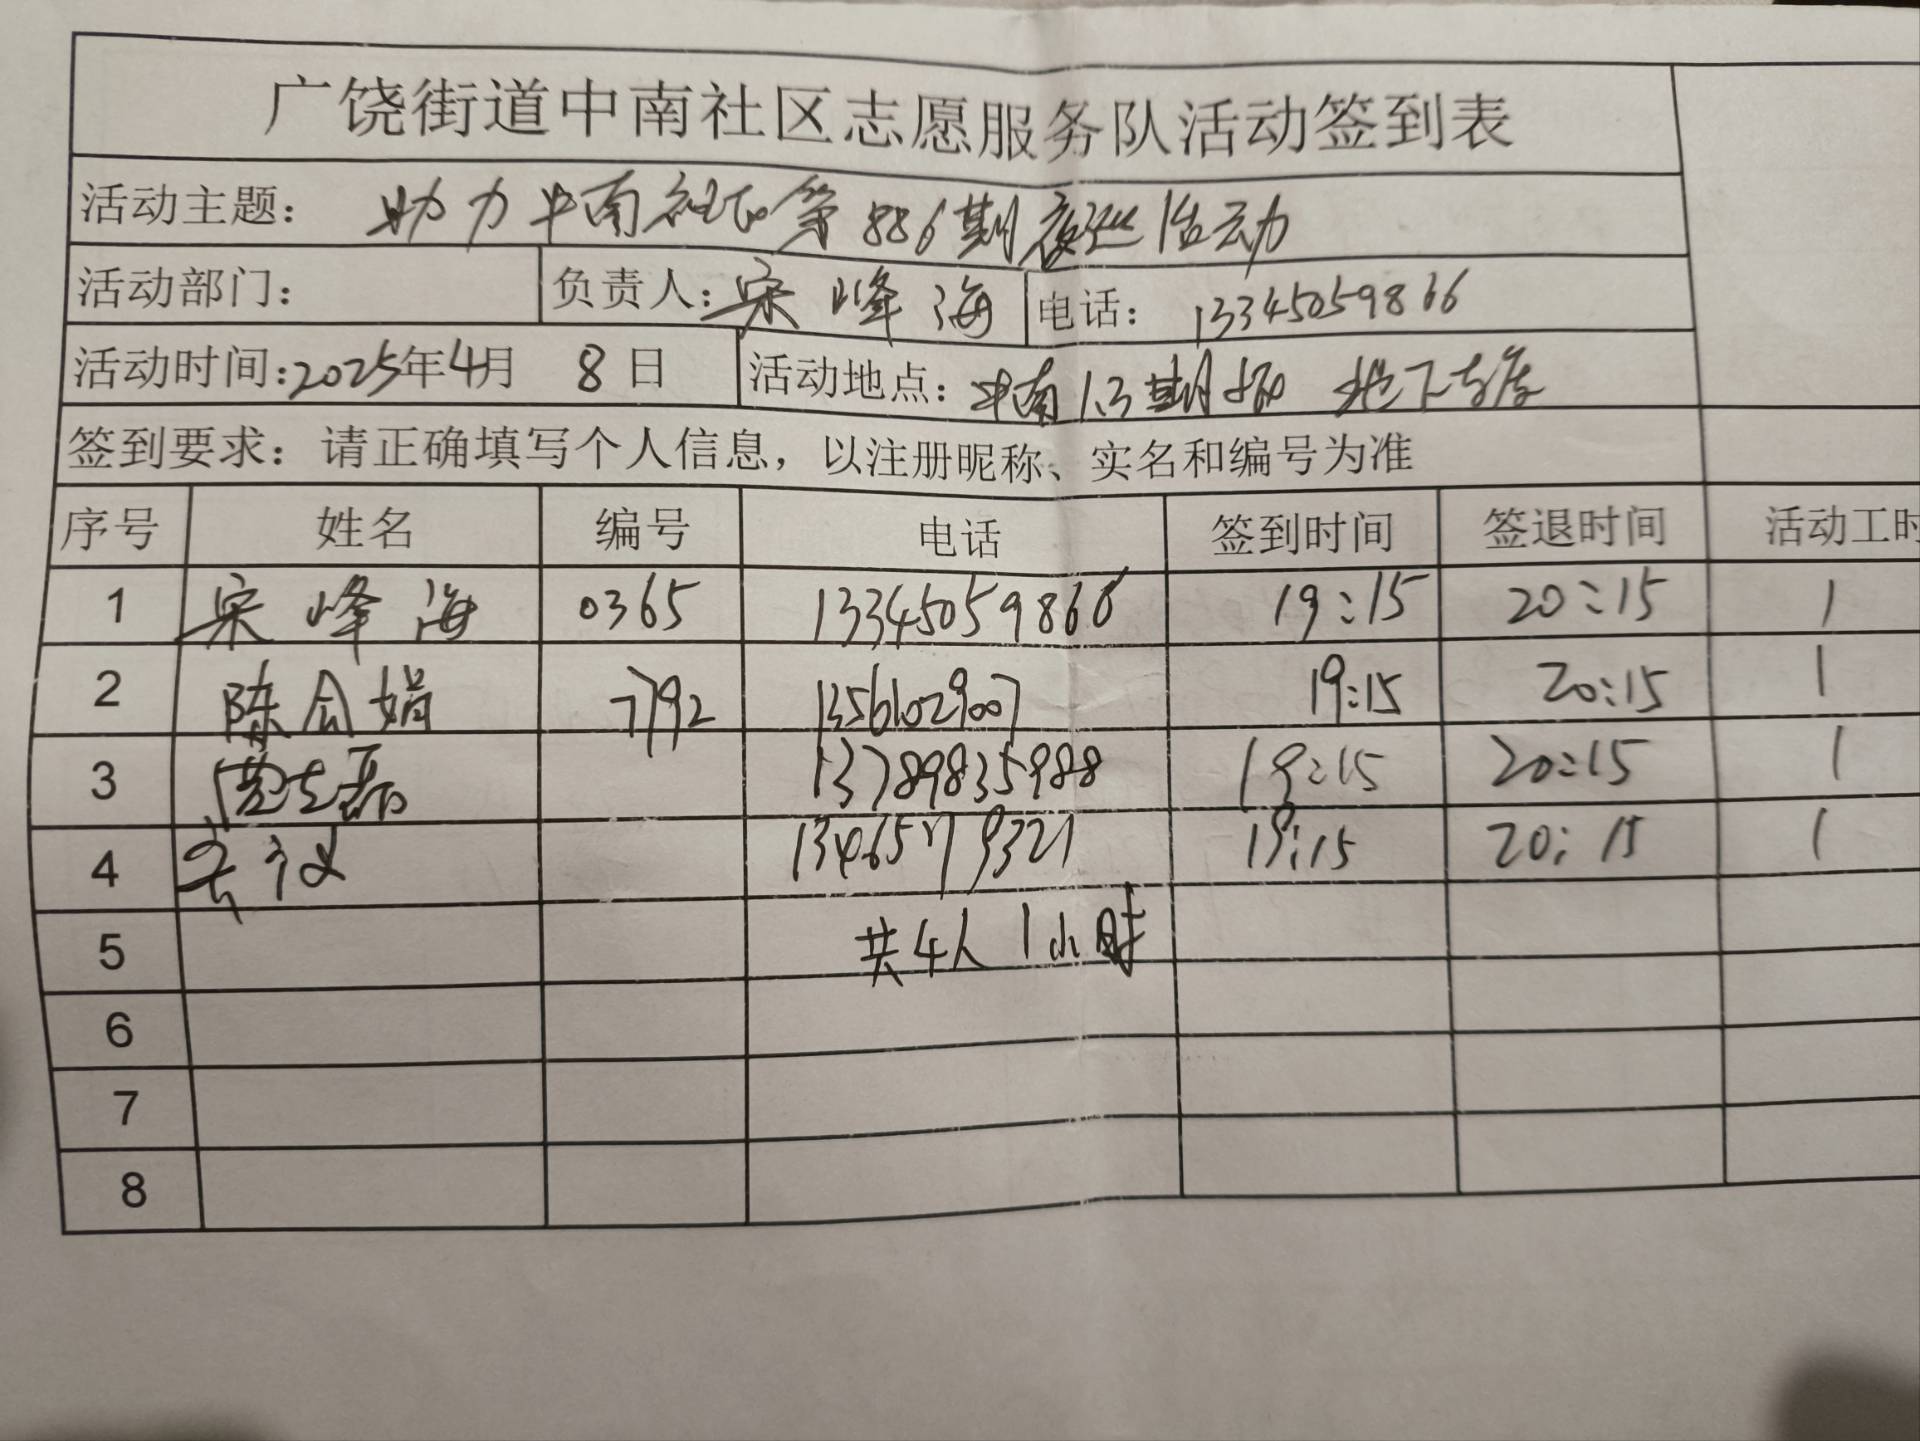 广饶街道中南社区志愿服务队活动签到表
活动主题：助力中南社区第886期夜巡活动
活动部门： 负责人：宋峰海 电话：13345059866
活动时间：2025年4月8日 活动地点：中南1.3期 地下车库
签到要求：请正确填写个人信息，以注册昵称、实名和编号为准
序号 姓名 编号 电话 签到时间 签退时间 活动工时
1 宋峰海 0365 13345059866 19:15 20:15 1
2 陈会娟 7792 13561029007 19:15 20:15 1
3 13789835988 19:15 20:15 1
4 19:15 20:15 1
5 共4人 1小时
6
7
8